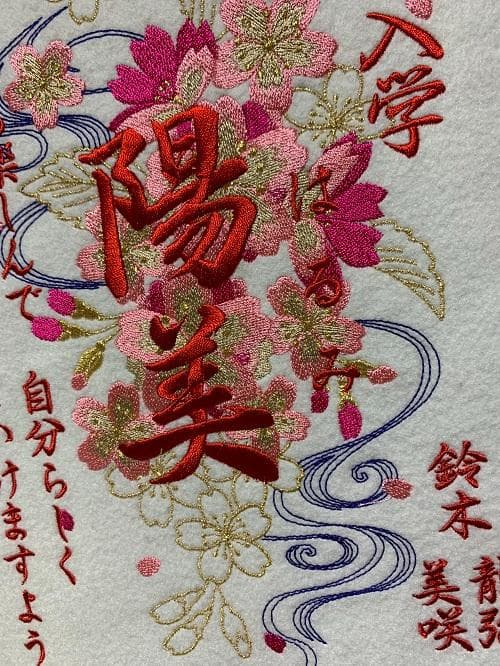 入学
陽美
はるみ
楽しんで
自分らしく
けますよう
鈴木 龍弥
美咲